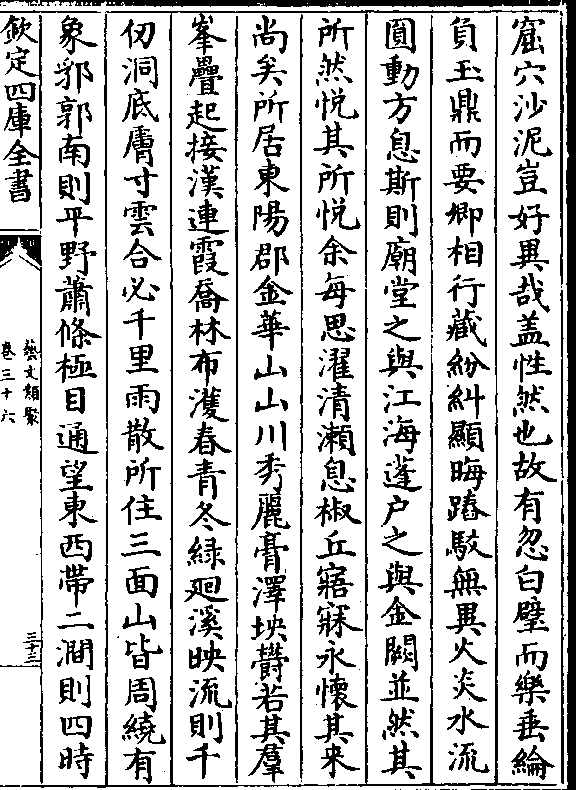 窟穴沙泥豈好異哉盖性然也故有忽白璧而樂垂綸
負玉鼎而要卿相行藏紛糾顯晦踳駁無異火炎水流
圓動方息斯則廟堂之與江海蓬户之與金闕並然其
所然悦其所悦余每思濯清瀬息椒丘寤寐永懷其来
尚矣所居東陽郡金華山山川秀麗膏澤坱欝若其羣
峯疊起接漢連霞喬林布濩春青冬緑廻溪映流則千
仞洞底膚寸雲合必千里雨散所住三面山皆周繞有
象郛郭南則平野蕭條極目通望東西帶二澗則四時
欽定四庫全書
藝文類聚
卷三十六
三十三